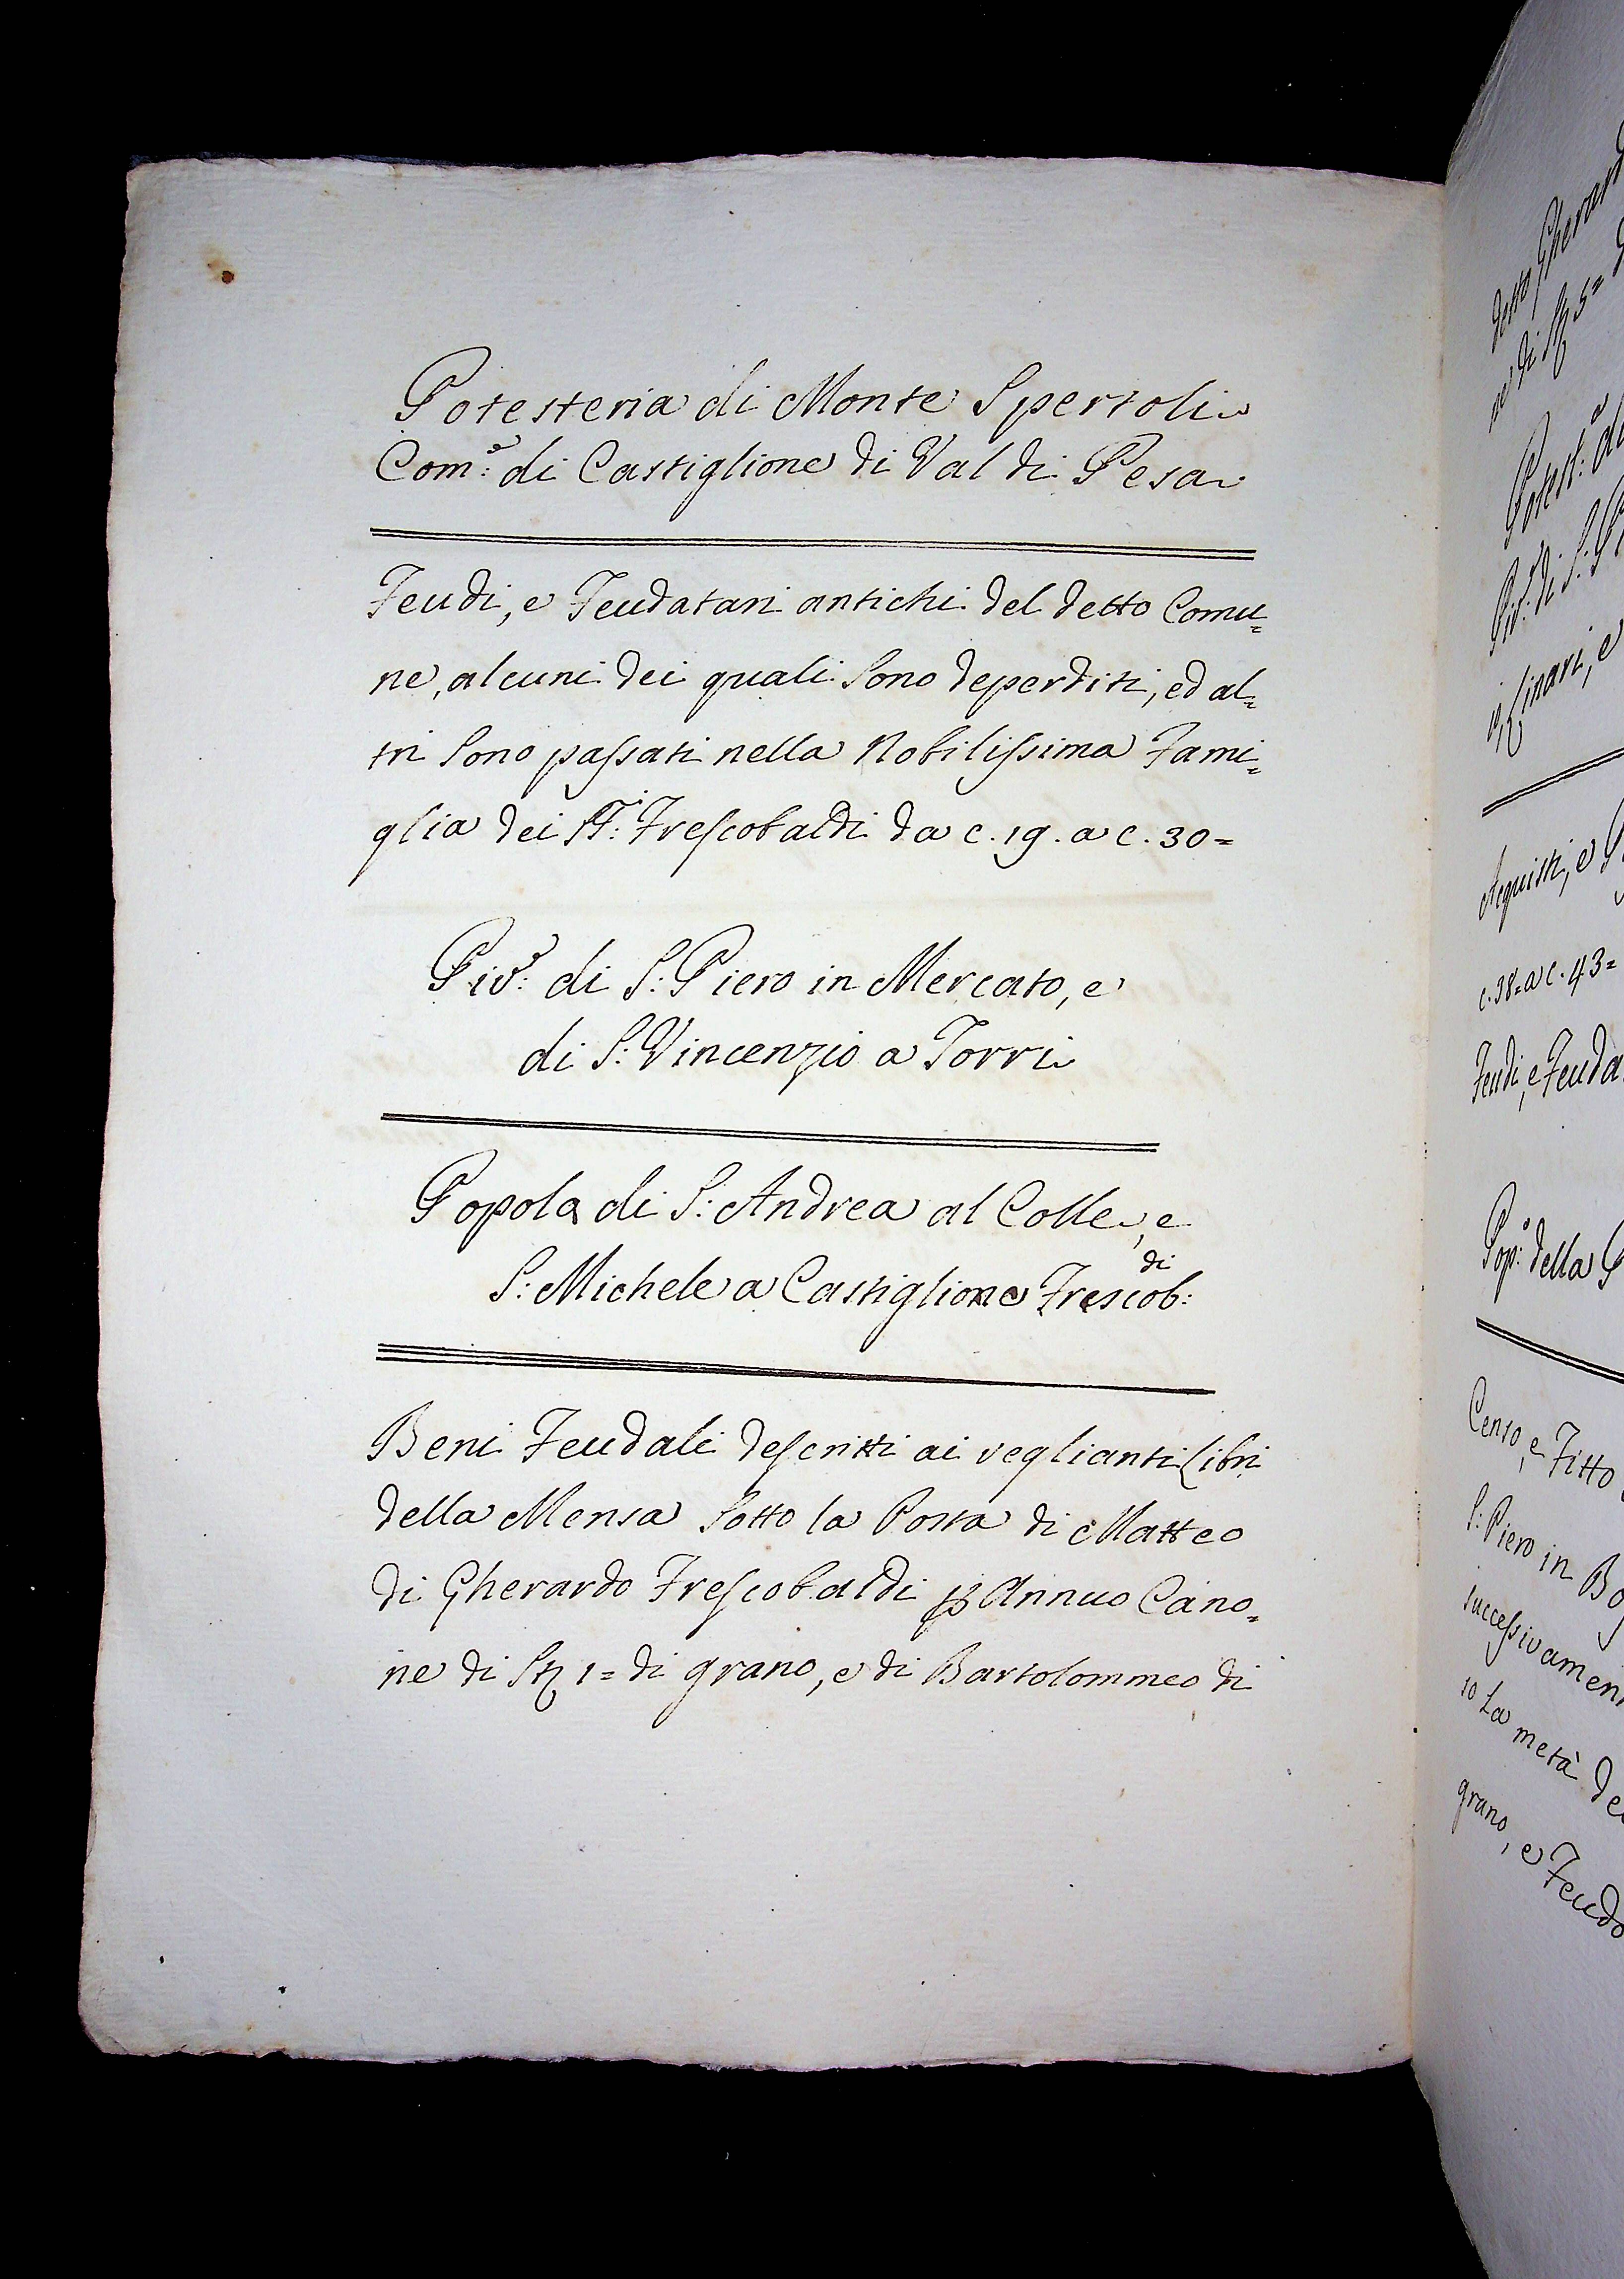 Potesteria di Monte Spertoli
Com:e di Castiglione di Val di Pesa
Feudi, e Feudatari antichi del detto Comu=
ne, alcuni dei quali sono deperditi, ed al=
tri sono passati nella Nobilissima Fami=
glia dei SS:i Frescobaldi da c. 19. a c. 30=
Piv:e di S: Piero in Mercato, e
di S: Vincenzio a Torri
Popola di S: Andrea al Colle, e
S: Michele a Castiglione Frescob:di
Beni Feudali descritti ai veglianti Libri
della Mensa sotto la Posta di Matteo
di Gherardo Frescobaldi p Annuo Cano=
ne di St 1= di grano, e di Bartolommeo di
detto Gherar
ne di St 5=
Potest:a di
Piv:e di S: P
Acquisti, e
c. 38= a c. 43=
Feudi, e Feuda
Pop:o della
Censo, e Fitto
S: Piero in Bo
successivamen
to La metà de
grano, e Feudo